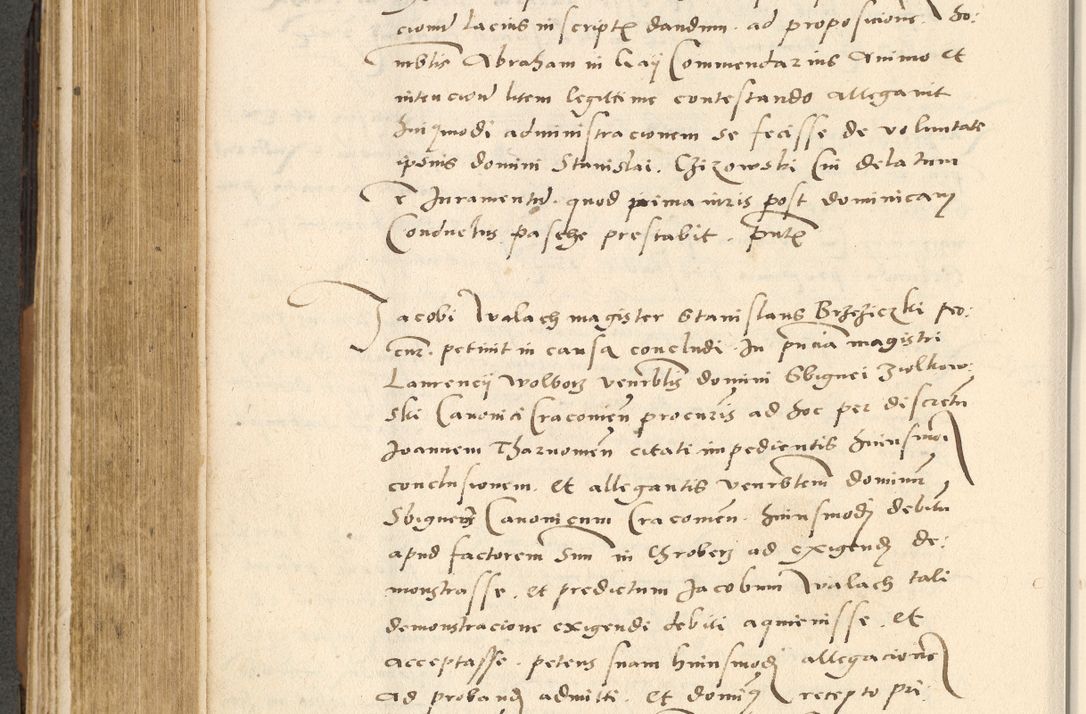 cionum lacius in scriptis dandum. ad proposicionem. Ho:
nrblis Abraham in Gay Commendarius Animo et
intencione litem legittime contestando allegavit
huiusmodi administracionem se fecisse de voluntate
ipsius domini Stanislai. Chizowski Cui delatum
est Iuramentum. quod prima iuris post dominicam
Conductus pasche prestabit. pntes
Iacobi Walach magister Stanislaus Brzeziczki pro:
curator. petiuit in causa concludi. In pncia magistri
Laurencij Wolborz venrblis domini Sbignei Ziolkow:
ski Canonici Cracoviensis procuratoris ad hoc per discretum
Ioannem Tharnowiensem citati impedientis huiusmodi
conclusionem. et allegantis venrblem dominum
Sbigneum Canonicum Cracoviensem. huiusmodi debitum
apud factorem suum in Chroberz ad exigendum de:
monstrasse. et predictum Iacobum Walach tali
demonstracione exigendi debiti aquievisse. et
acceptasse. petens suam huiusmodi allegacionem
ad probandum admitti. Et dominus recepto pri: